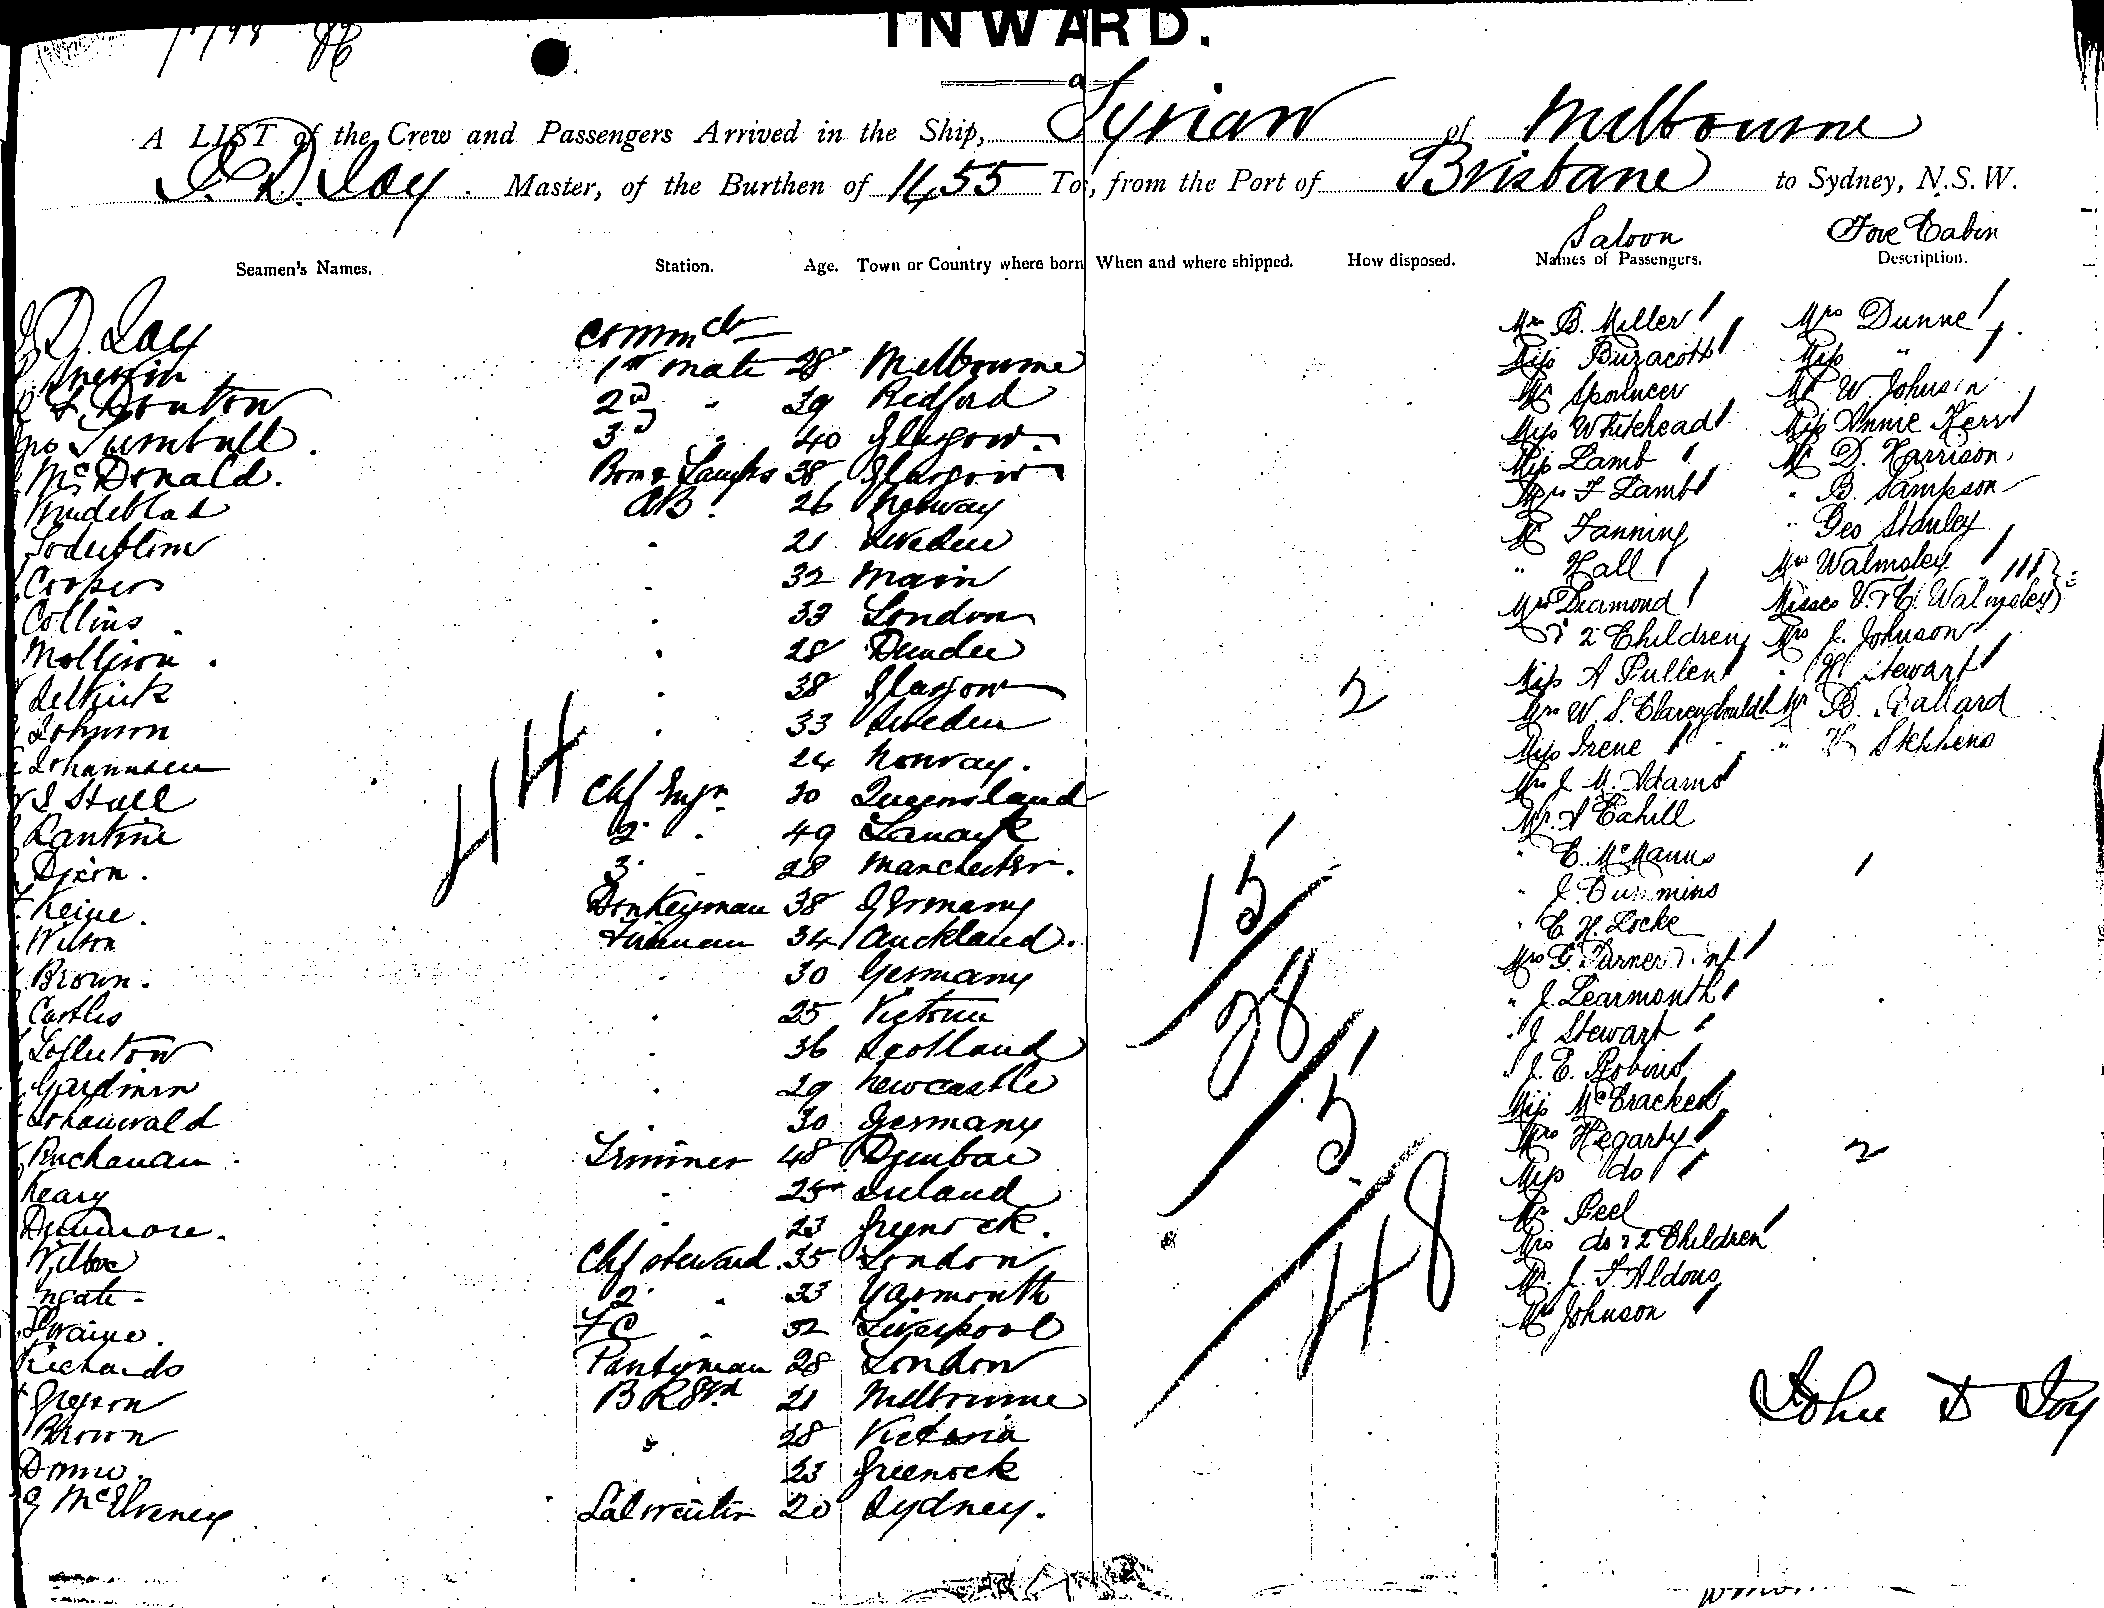 INWARD.
A LIST of the Crew and Passengers Arrived in the Ship, Syrian of Melbourne
J. D. Joy. Master, of the Burthen of 1455 Tos, from the Port of Brisbane to Sydney, N.S.W.
Saloon Fore Cabin
Seamen's Names. Station. Age. Town or Country where born When and where shipped. How disposed. Names of Passengers. Description.
J D. Joy Commdr Mr B. Miller Mrs Dunne
1st mate 28 Melbourne Miss Buzacott Miss "
2nd " 39 Redford Mr Spencer Mr W. Johnson
Turnbull. 3d " 40 Glasgow. Miss Whitehead Miss Annie Kerr
McDonald. Bosn & Lamps 38 Glasgow Miss Lamb Mr D. Harrison
AB. 26 Norway Mrs F Lamb " B. Sampson
" 21 Sweden Mr Fanning " Geo Stanley
Cooper 32 Main " Hall Mrs Walmsley
Collins " 33 London Mrs Diamond Misses V. & C. Walmsley
Mollison. " 28 Dundee & 2 Children Mrs J. Johnson
Selkirk " 38 Glasgow 2 Miss A Pullen " H Stewart
Johnson " 33 Sweden Mrs W. S. Mr B. Ballard
Johannsen 24 Norway. Miss Irene " H Stephens
Stall Chf Engr 30 Queensland Mrs J. M. Adams
Rankine 2 " 49 Lanark Mr. A Cahill
Dixon. 3 " 28 Manchester. " E. McManus
Heine. Donkeyman 38 Germany 15 " J. Dummins
Wilson Fireman 34 Auckland. " E. H. Locke
Brown. " 30 Germany Mrs G. & inf
Castles " 25 Victoria " J. Learmonth
" 36 Scotland 28 " J Stewart
Gardiner " 29 Newcastle " J. E. Robins
" 30 Germany Miss McCracken
Buchanan. Trimmer 48 Dunbar 5 Mrs Hegarty 2
Leary " 25 Ireland Miss do
Dunmore. " 23 Greenock. Mr Peel
Chf steward. 35 London 48 Mrs do & 2 Children
2 " 33 Yarmouth Mr. J. F. Aldous
Swaine. FC " 32 Liverpool Mrs Johnson
Richards Pantryman 28 London
B R Std 21 Melbourne John D Joy
Brown " 28 Victoria
23 Greenock
McElveney 20 Sydney.